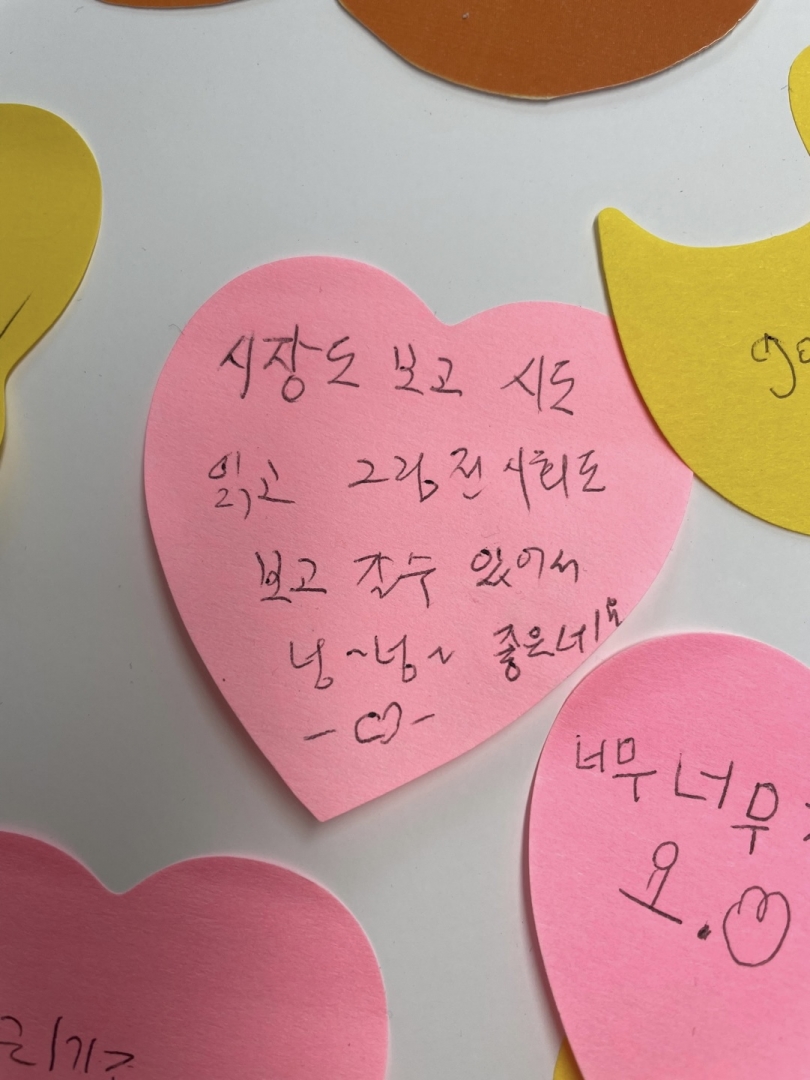 시장도 보고 시도
읽고 그림전시회도
보고 갈수 있어서
넝~넝~ 좋은네요
너무 너무
요.
go